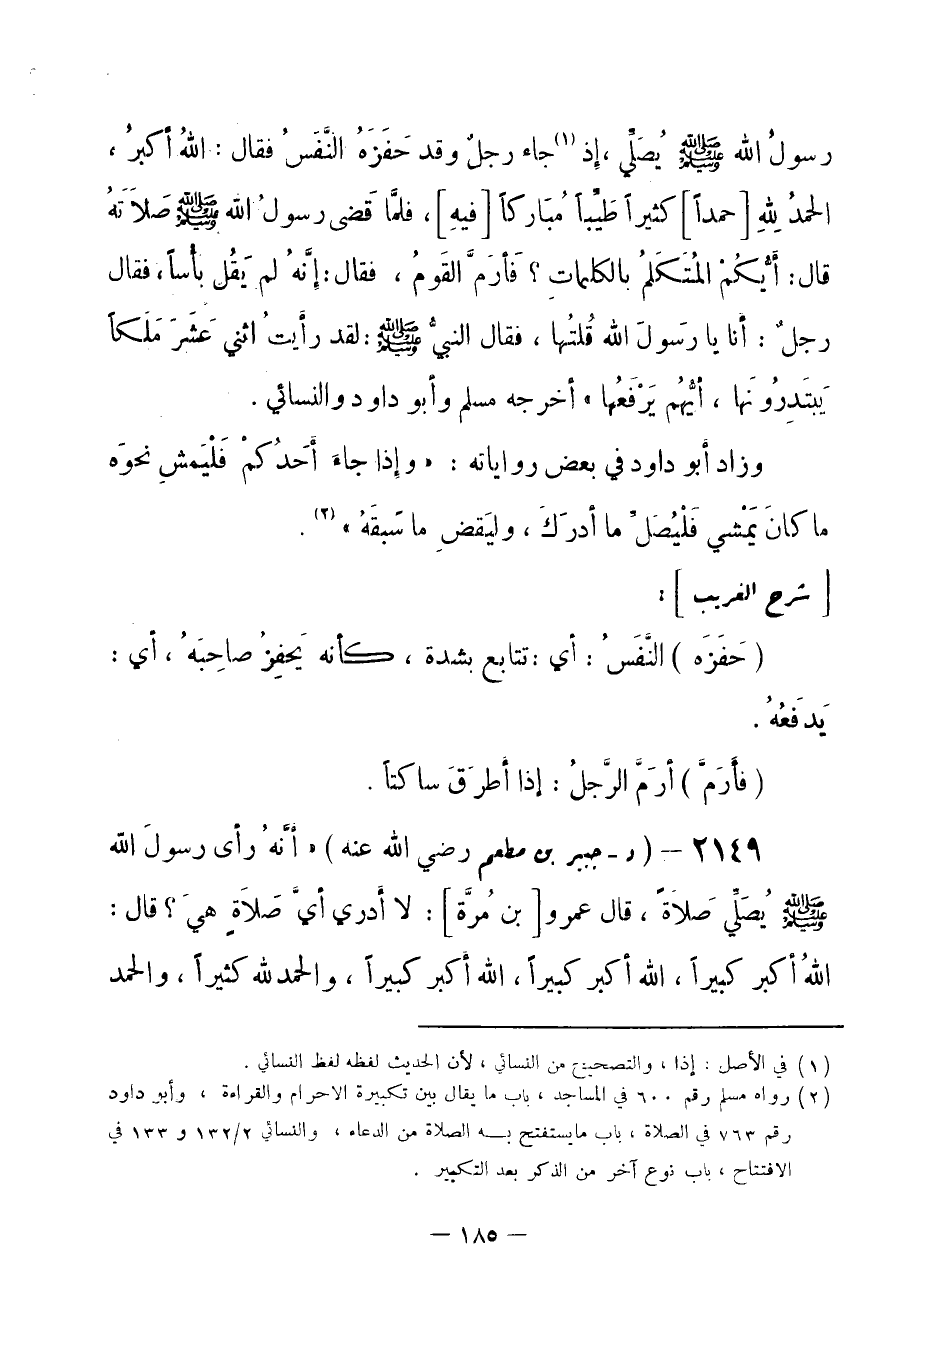 رسولُ الله ﷺ يُصَلِّي ، إذ (١) جاء رجلٌ وقد حَفَزَهُ النَّفَسُ فقال : اللهُ أكبرُ ،
الحمدُ لِلهِ [ حمداً ] كثيراً طَيِّباً مُبَاركاً [ فيهِ ] ، فلمَّا قَضى رسولُ الله ﷺ صَلاتَهُ
قال : أَيُّكُمْ المُتَكَلِّمُ بالكلماتِ ؟ فَأَرَمَّ القَومُ ، فقال : إنَّهُ لم يَقُل بأساً ، فقال
رجلٌ : أنا يا رسَولَ الله قُلتُها ، فقال النبيُّ ﷺ : لقد رأيتُ اثني عَشَرَ مَلَكاً
يَبتَدِرُونَها ، أَيُّهُم يَرْفَعُها » أخرجه مسلم وأبو داود والنسائي .
وزاد أبو داود في بعض رواياته : « وإذا جاءَ أَحَدُكُمْ فَلْيَمشِ نحوَهُ
ما كانَ يَمْشي فَلْيُصَلِّ ما أدرَكَ ، وليَقضِ ما سَبقَهُ » (٢) .
[ شرح الغريب ] :
( حَفَزَه ) النَّفَسُ : أي : تتابع بشدة ، كأنه يَحفِزُ صاحِبَهُ ، أي :
يَدفَعُهُ .
( فأَرَمَّ ) أرَمَّ الرَّجلُ : إذا أطرَقَ ساكتاً .
٢١٤٩ – ( د – جبير بن مطعم رضي الله عنه ) « أنَّهُ رأى رسولَ الله
ﷺ يُصَلِّي صَلاةً ، قال عمرو [ بن مُرَّة ] : لا أدري أيَّ صَلاةٍ هيَ ؟ قال :
اللهُ أكبر كبيراً ، الله أكبر كبيراً ، الله أكبر كبيراً ، والحمد لله كثيراً ، والحمد
(١) في الأصل : إذا ، والتصحيح من النسائي ، لأن الحديث لفظه لفظ النسائي .
(٢) رواه مسلم رقم ٦٠٠ في المساجد ، باب ما يقال بين تكبيرة الاحرام والقراءة ، وأبو داود
رقم ٧٦٣ في الصلاة ، باب مايستفتح بــه الصلاة من الدعاء ، والنسائي ١٣٢/٢ و ١٣٣ في
الافتتاح ، باب نوع آخر من الذكر بعد التكبير .
– ١٨٥ –